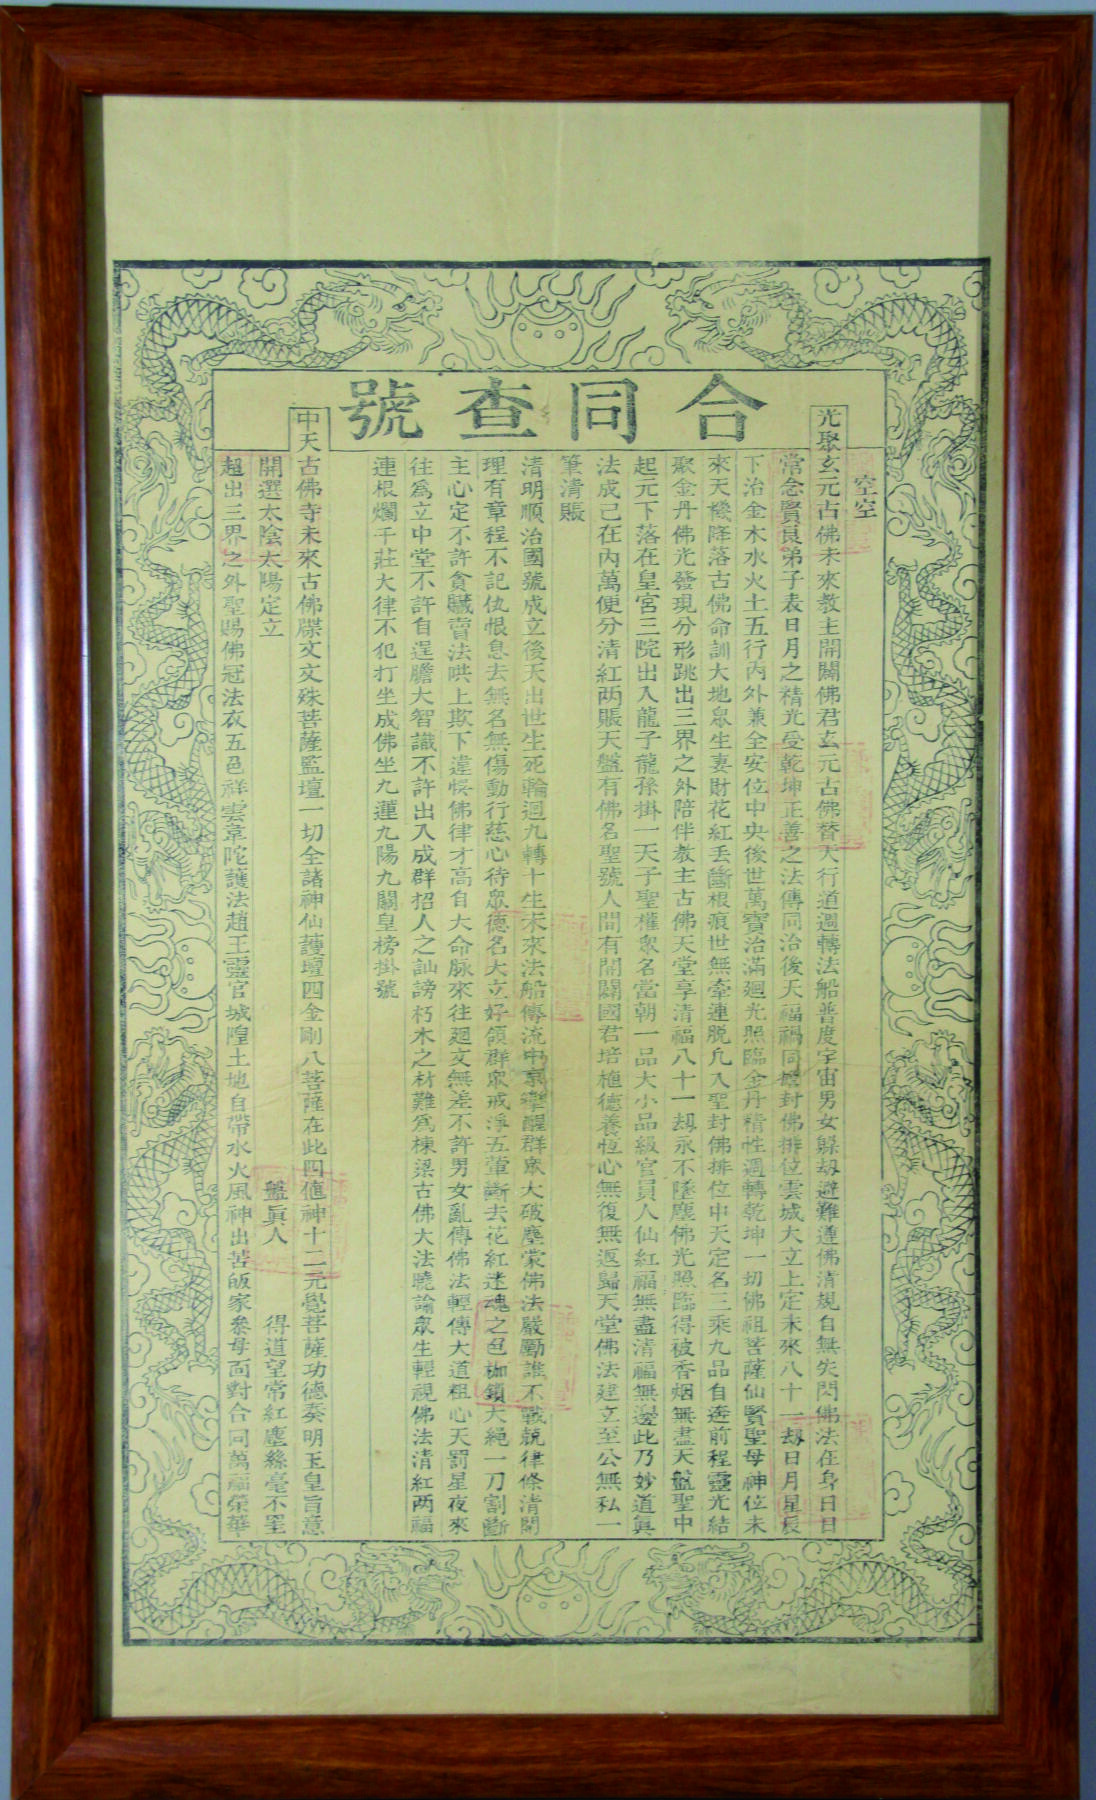 合同查號
空空
光聚玄元古佛未來教主開闢佛君玄元古佛替天行道週轉法船普度宇宙男女躲劫避難遵佛清規自無失閃佛法在身日日
常念賢良弟子表日月之精光受乾坤正善之法傳同治後天福禍同當封佛排位雲城大立上定未來八十一劫日月星辰
下治金木水火土五行內外兼全安位中央後世萬寶治滿廻光照臨金丹精性週轉乾坤一切佛祖菩薩仙賢聖母神位未
來天機降落古佛命訓大地眾生妻財花紅丢斷根痕世無牽連脫凡入聖封佛排位中天定名三乘九品自逩前程靈光結
聚金丹佛光發現分形跳出三界之外陪伴教主古佛天堂享清福八十一劫永不墜塵佛光照臨得被香烟無盡天盤聖中
起元下落在皇宮三院出入龍子龍孫掛一天子聖權眾名當朝一品大小品級官員人仙紅福無盡清福無邊此乃妙道真
法成己在內萬便分清紅两賬天盤有佛名聖號人間有開闢國君培植德養恆心無復無返歸天堂佛法建立至公無私一
筆清賬
清明順治國號成立後天出世生死輪迴九轉十生未來法船傳流中京擊醒群眾大破塵裳佛法嚴勵誰不戰兢律條清開
理有章程不記仇恨息去無名無傷動行慈心待眾德名大立好領群眾戒淨五葷斷去花紅迷魂之色枷鎖大繩一刀割斷
主心定不許貪贓賣法哄上欺下違悞佛律才高自大命脉來往廻文無差不許男女亂傳佛法輕傳大道粗心天罰星夜來
往為立中堂不許自逞膽大智識不許出入成群招人之訕謗朽木之材難為棟梁古佛大法曉諭眾生輕視佛法清紅两福
連根爛千莊大律不犯打坐成佛坐九蓮九陽九關皇榜掛號
中天古佛寺未來古佛牒文文殊菩薩監壇一切全諸神仙護壇四金剛八菩薩在此四值神十二元覺菩薩功德奏明玉皇旨意
開選太陰太陽定立 盤真人 得道望常紅塵絲毫不罣
超出三界之外聖賜佛冠法衣五色祥雲韋陀護法趙王靈官城隍土地自帶水火風神出苦皈家叅母面對合同萬福榮華